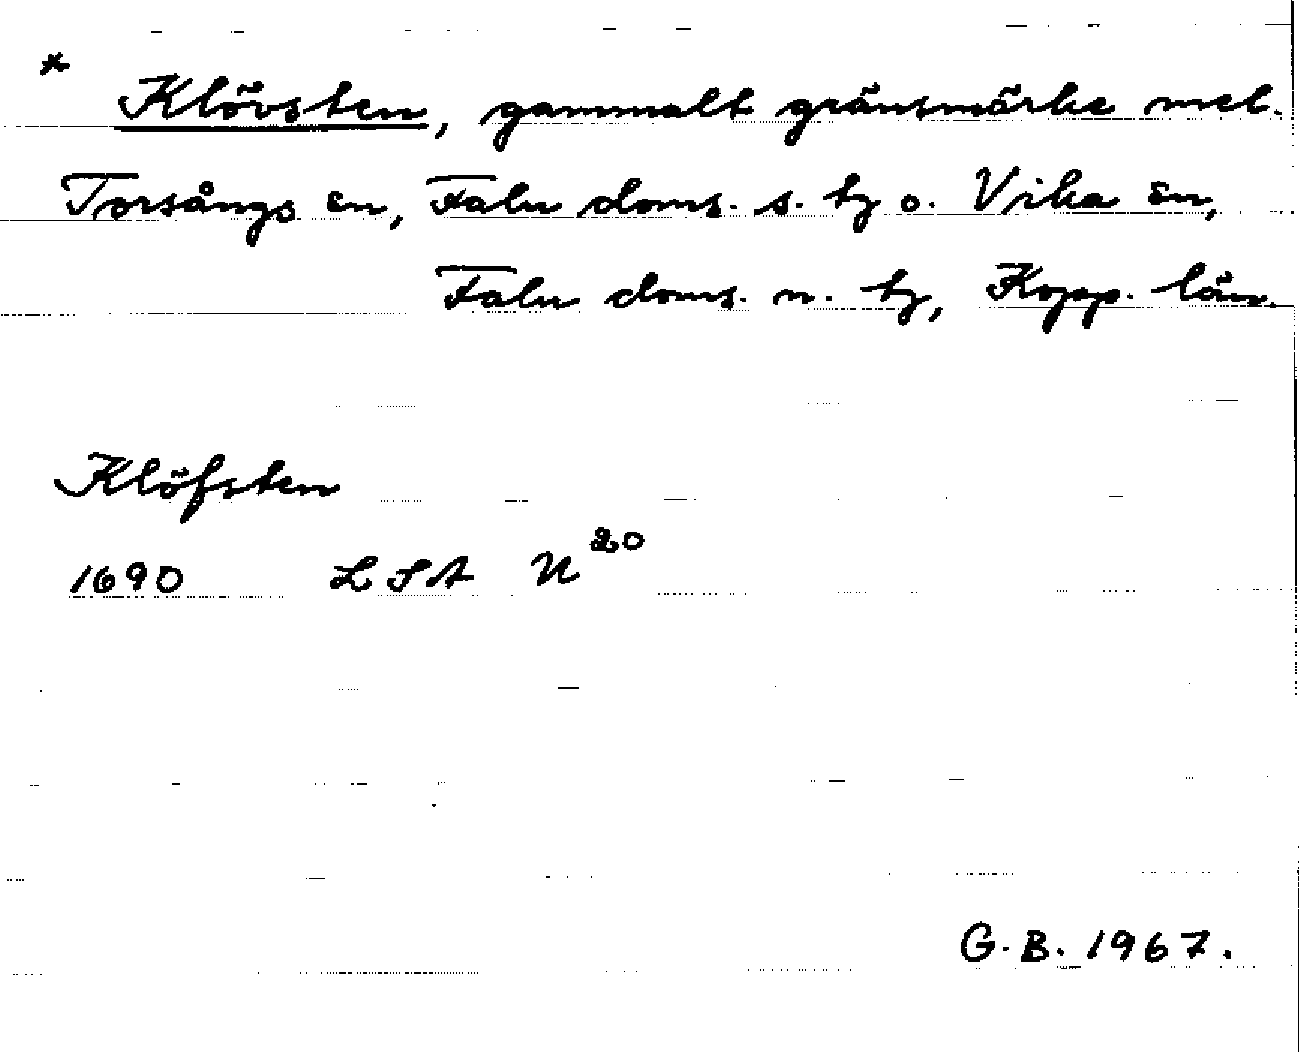 * Klövsten, gammalt gränsmärke mel.
Torsångs sn, Falu doms. s. tg o. Vika sn,
Falu doms. n. tg, Kopp. län.
Klöfsten
1690 LSA U²⁰
G.B. 1967.